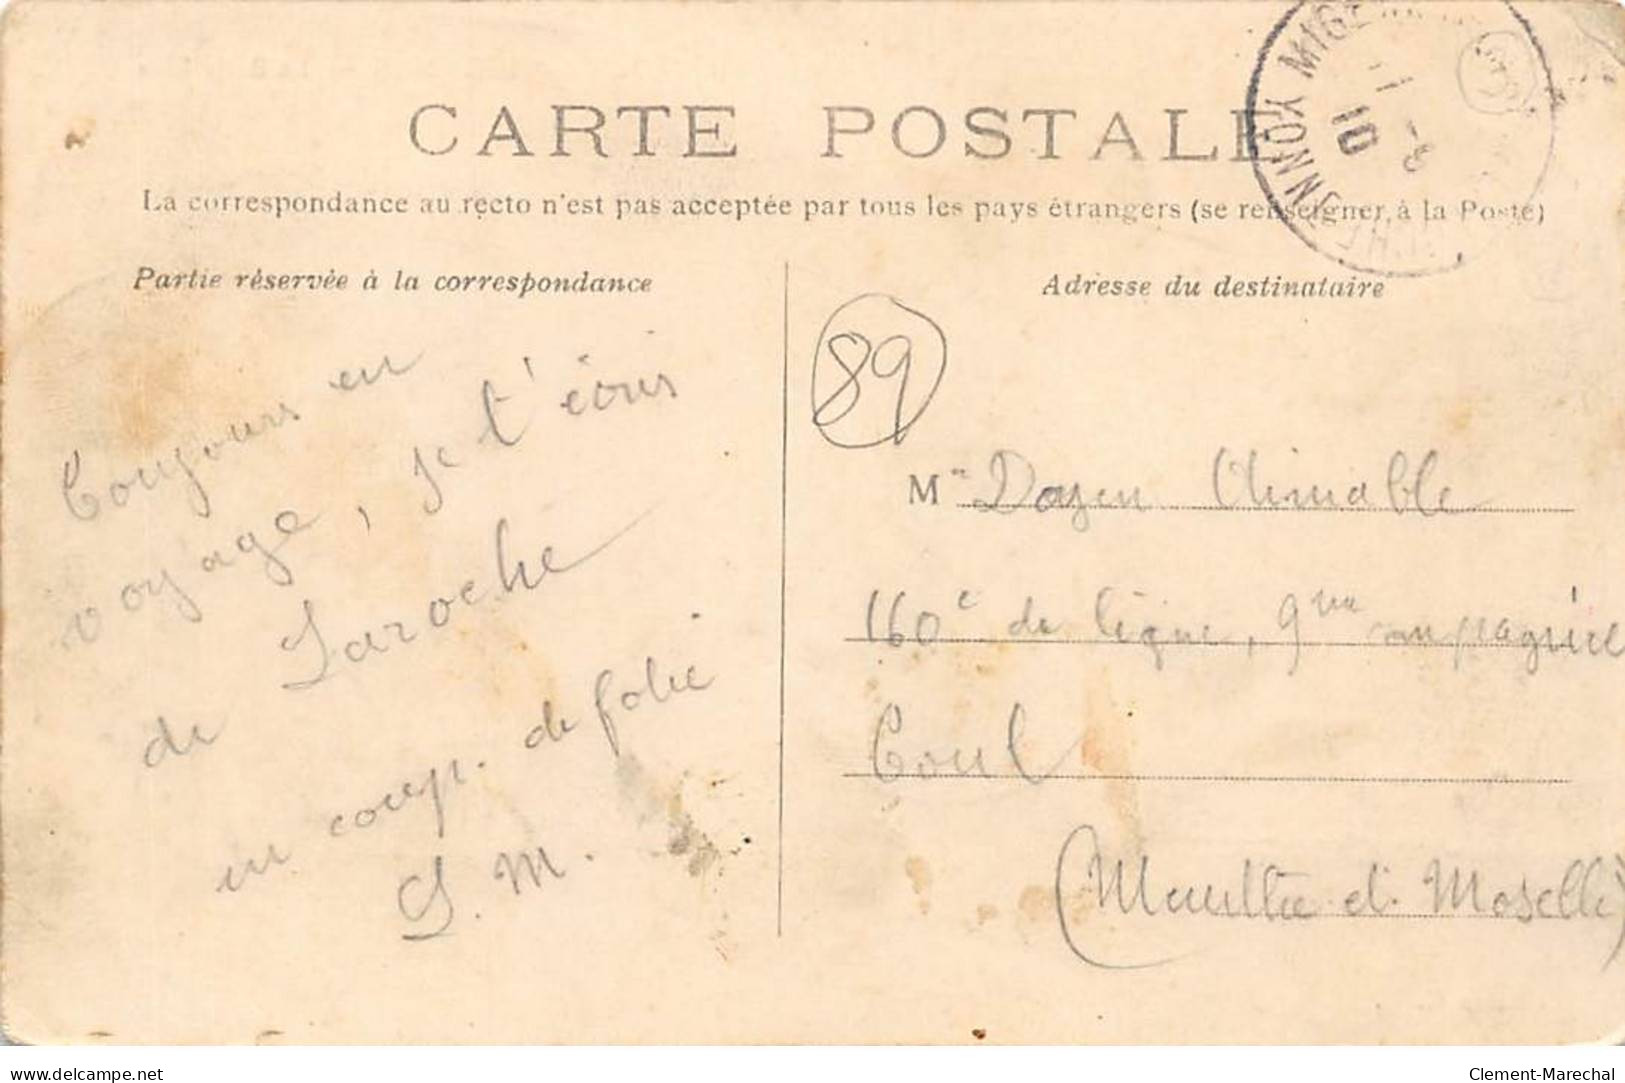 CARTE POSTALE
La correspondance au recto n'est pas acceptée par tous les pays étrangers (se renseigner à la Poste)
Partie réservée à la correspondance
Toujours en
voyage, je t'écris
de Laroche
un coup. de folie
S. M.
Adresse du destinataire
89
Mr Doyen Aimable
160e de ligne, 9me compagnie
Toul
(Meurthe et Moselle)
YONNE
10
delcampe.net
Clement-Marechal